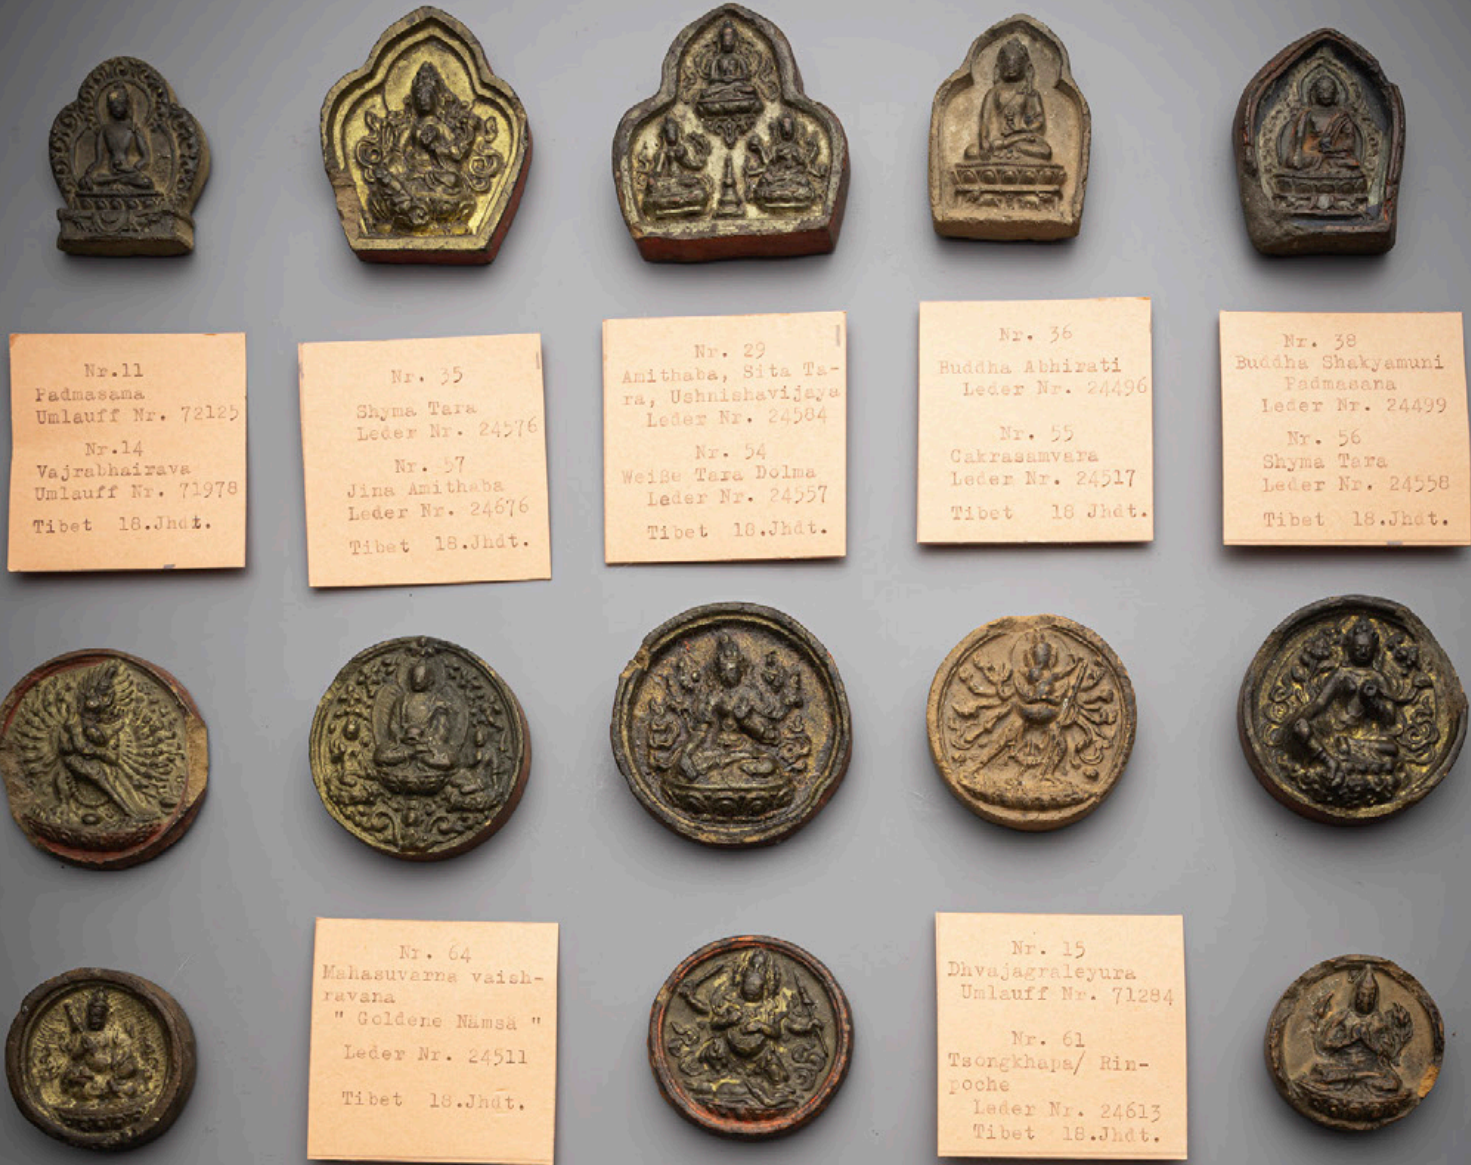 Nr.11
Padmasama
Umlauff Nr. 72125
Nr.14
Vajrabhairava
Umlauff Nr. 71978
Tibet 18.Jhdt.
Nr. 35
Shyma Tara
Leder Nr. 24576
Nr. 57
Jina Amithaba
Leder Nr. 24676
Tibet 18.Jhdt.
Nr. 29
Amithaba, Sita Ta-
ra, Ushnishavijaya
Leder Nr. 24584
Nr. 54
Weiße Tara Dolma
Leder Nr. 24557
Tibet 18.Jhdt.
Nr. 36
Buddha Abhirati
Leder Nr. 24496
Nr. 55
Cakrasamvara
Leder Nr. 24517
Tibet 18 Jhdt.
Nr. 38
Buddha Shakyamuni
Padmasana
Leder Nr. 24499
Nr. 56
Shyma Tara
Leder Nr. 24558
Tibet 18.Jhdt.
Nr. 64
Mahasuvarna vaish-
ravana
" Goldene Namsä "
Leder Nr. 24511
Tibet 18.Jhdt.
Nr. 15
Dhvajagraleyura
Umlauff Nr. 71284
Nr. 61
Tsongkhapa/ Rin-
poche
Leder Nr. 24613
Tibet 18.Jhdt.